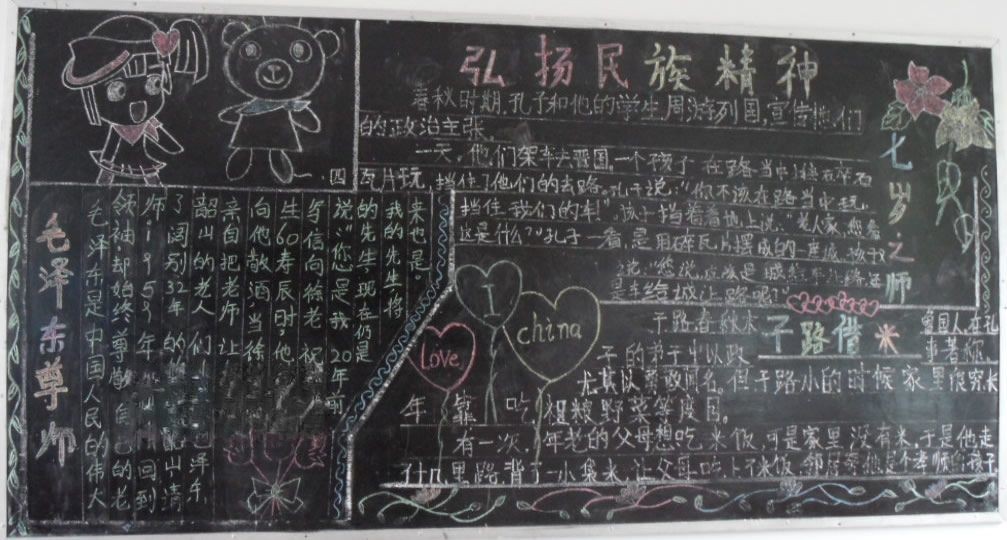 弘扬民族精神
春秋时期,孔子和他的学生周游列国,宣传他们
的政治主张。
一天,他们架车去晋国。一个孩子在路当中
瓦片玩,挡住了他们的去路。孔子说:“你不该在路当中玩,
挡住我们的车!”孩子指着地上说:“老人家,您看
这是什么?”孔子一看,是用碎瓦片摆成的一座城。孩子
说:“您说,应该是城给车让路还
是车给城让路呢?”
七岁之师
I
Love
china
子路借米
子路春秋末
鲁国人,在孔
子的弟子中以政
事著称。
尤其以 闻名。但子路小的时候家里很穷,长
年靠吃粗粮野菜等度日。
有一次,年老的父母想吃米饭,可是家里没有米,于是他走
了十几里路,背了一小袋米,让父母吃上了米饭,邻居
毛泽东尊师
毛泽东是中国人民的伟大
领袖却始终尊敬自己的老
师1959年 回到
了阔别32年的 韶山,请
韶山的老人们 毛泽东
亲自把老师让
向他敬酒。当徐
生60寿辰时,他
写信向徐老祝
说:“您是我20年前
的先生,现在仍是
我的先生,将
来也是。
四